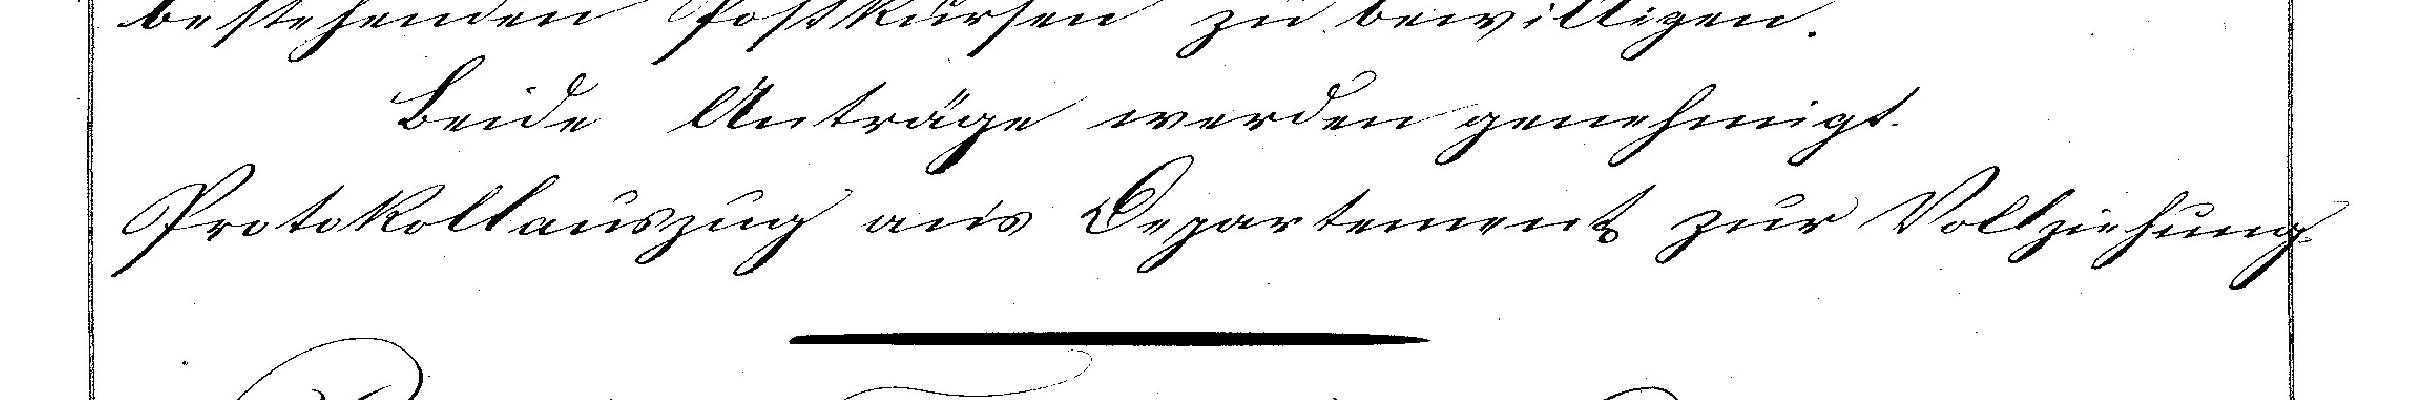 bestehenden Postkursen zu bewilligen.
Beide Anträge werden genehmigt.
Protokollauszug an's Departement zur Vollziehung.